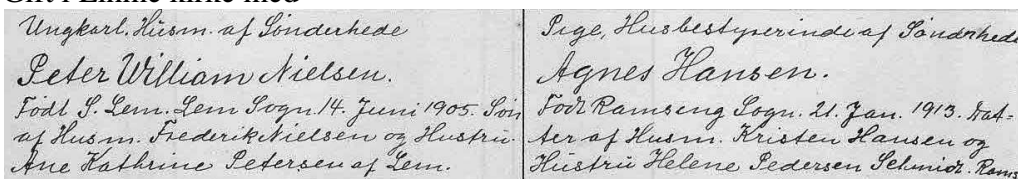 Gift i Lihme kirke med
Ungkarl, Husm. af Sønderhede
Peter William Nielsen.
Født S. Lem. Lem Sogn. 14. Juni 1905. Søn
af Husm. Frederik Nielsen og Hustru
Ane Kathrine Petersen af Lem.
Pige, Husbestyrerinde af Sønderhede
Agnes Hansen.
Født Ramsing Sogn. 21. Jan. 1913. Dat-
ter af Husm. Kristen Hansen og
Hustru Helene Pedersen Schmidt. Rams